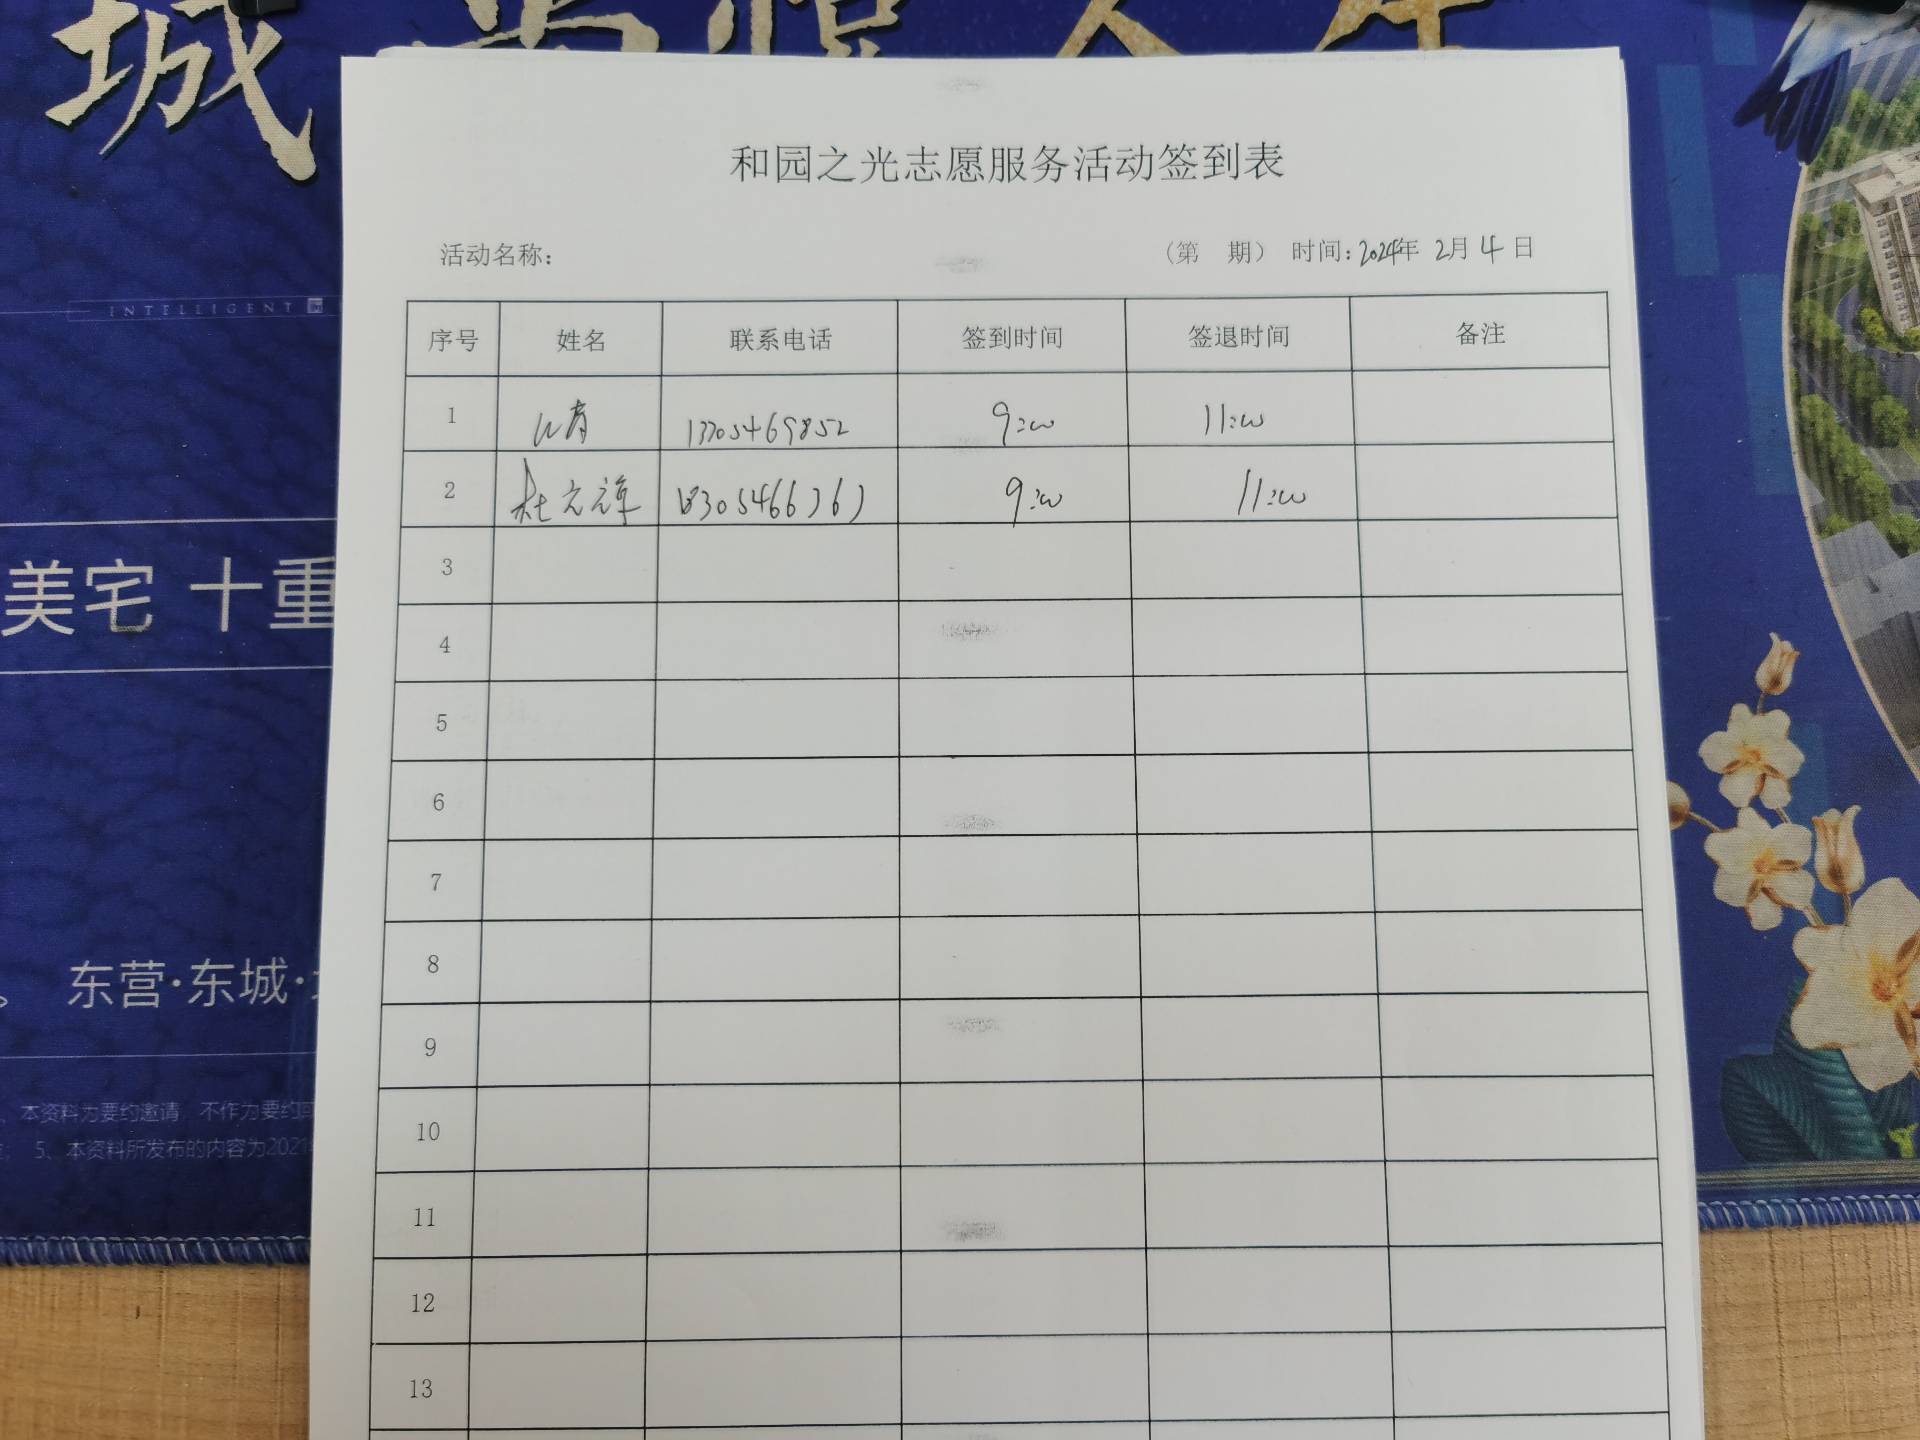 城
INTELLIGENT
美宅 十重
东营·东城·
本资料为要约邀请,不作为要约
5、本资料所发布的内容为2021
和园之光志愿服务活动签到表
活动名称: (第 期) 时间:2024年 2月 4日
序号 姓名 联系电话 签到时间 签退时间 备注
1 13705469852 9:00 11:00
2 杜元元 9:00 11:00
3
4
5
6
7
8
9
10
11
12
13